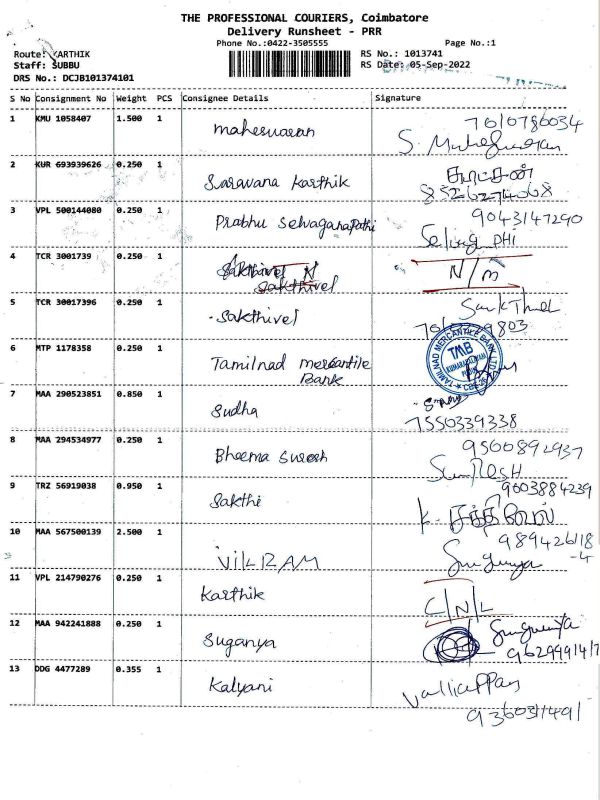 THE PROFESSIONAL COURIERS, Coimbatore
Delivery Runsheet - PRR
Phone No.:0422-3505555 Page No.:1
Route: KARTHIK RS No.: 1013741
Staff: SUBBU RS Date: 05-Sep-2022
DRS No.: DCJB101374101
S No Consignment No Weight PCS Consignee Details Signature
1 KMU 1058407 1.500 1 maheswaran 7010786034
S.
2 KUR 693939626 0.250 1 Saravana Karthik
8526274068
3 VPL 500144080 0.250 1 Prabhu Selvaganapathi 9043147290
4 TCR 3001739 0.250 1 Sakthivel N N/m
Sakthivel
5 TCR 30017396 0.250 1 - Sakthivel
6 MTP 1178358 0.250 1 Tamilnad mercantile
Bank
TAMILNAD MERCANTILE BANK LTD
TMB
7 MAA 290523851 0.850 1 Sudha
7550339338
8 MAA 294534977 0.250 1 Bheema Suresh 9500892937
9 TRZ 56919038 0.950 1 Sakthi 9603884239
க. சக்திவேல்
10 MAA 567500139 2.500 1 VIKRAM 989426118
-4
11 VPL 214790276 0.250 1 Karthik
C/N/L
12 MAA 942241888 0.250 1 Suganya Suganya
13 DDG 4477289 0.355 1 Kalyani Valliappan